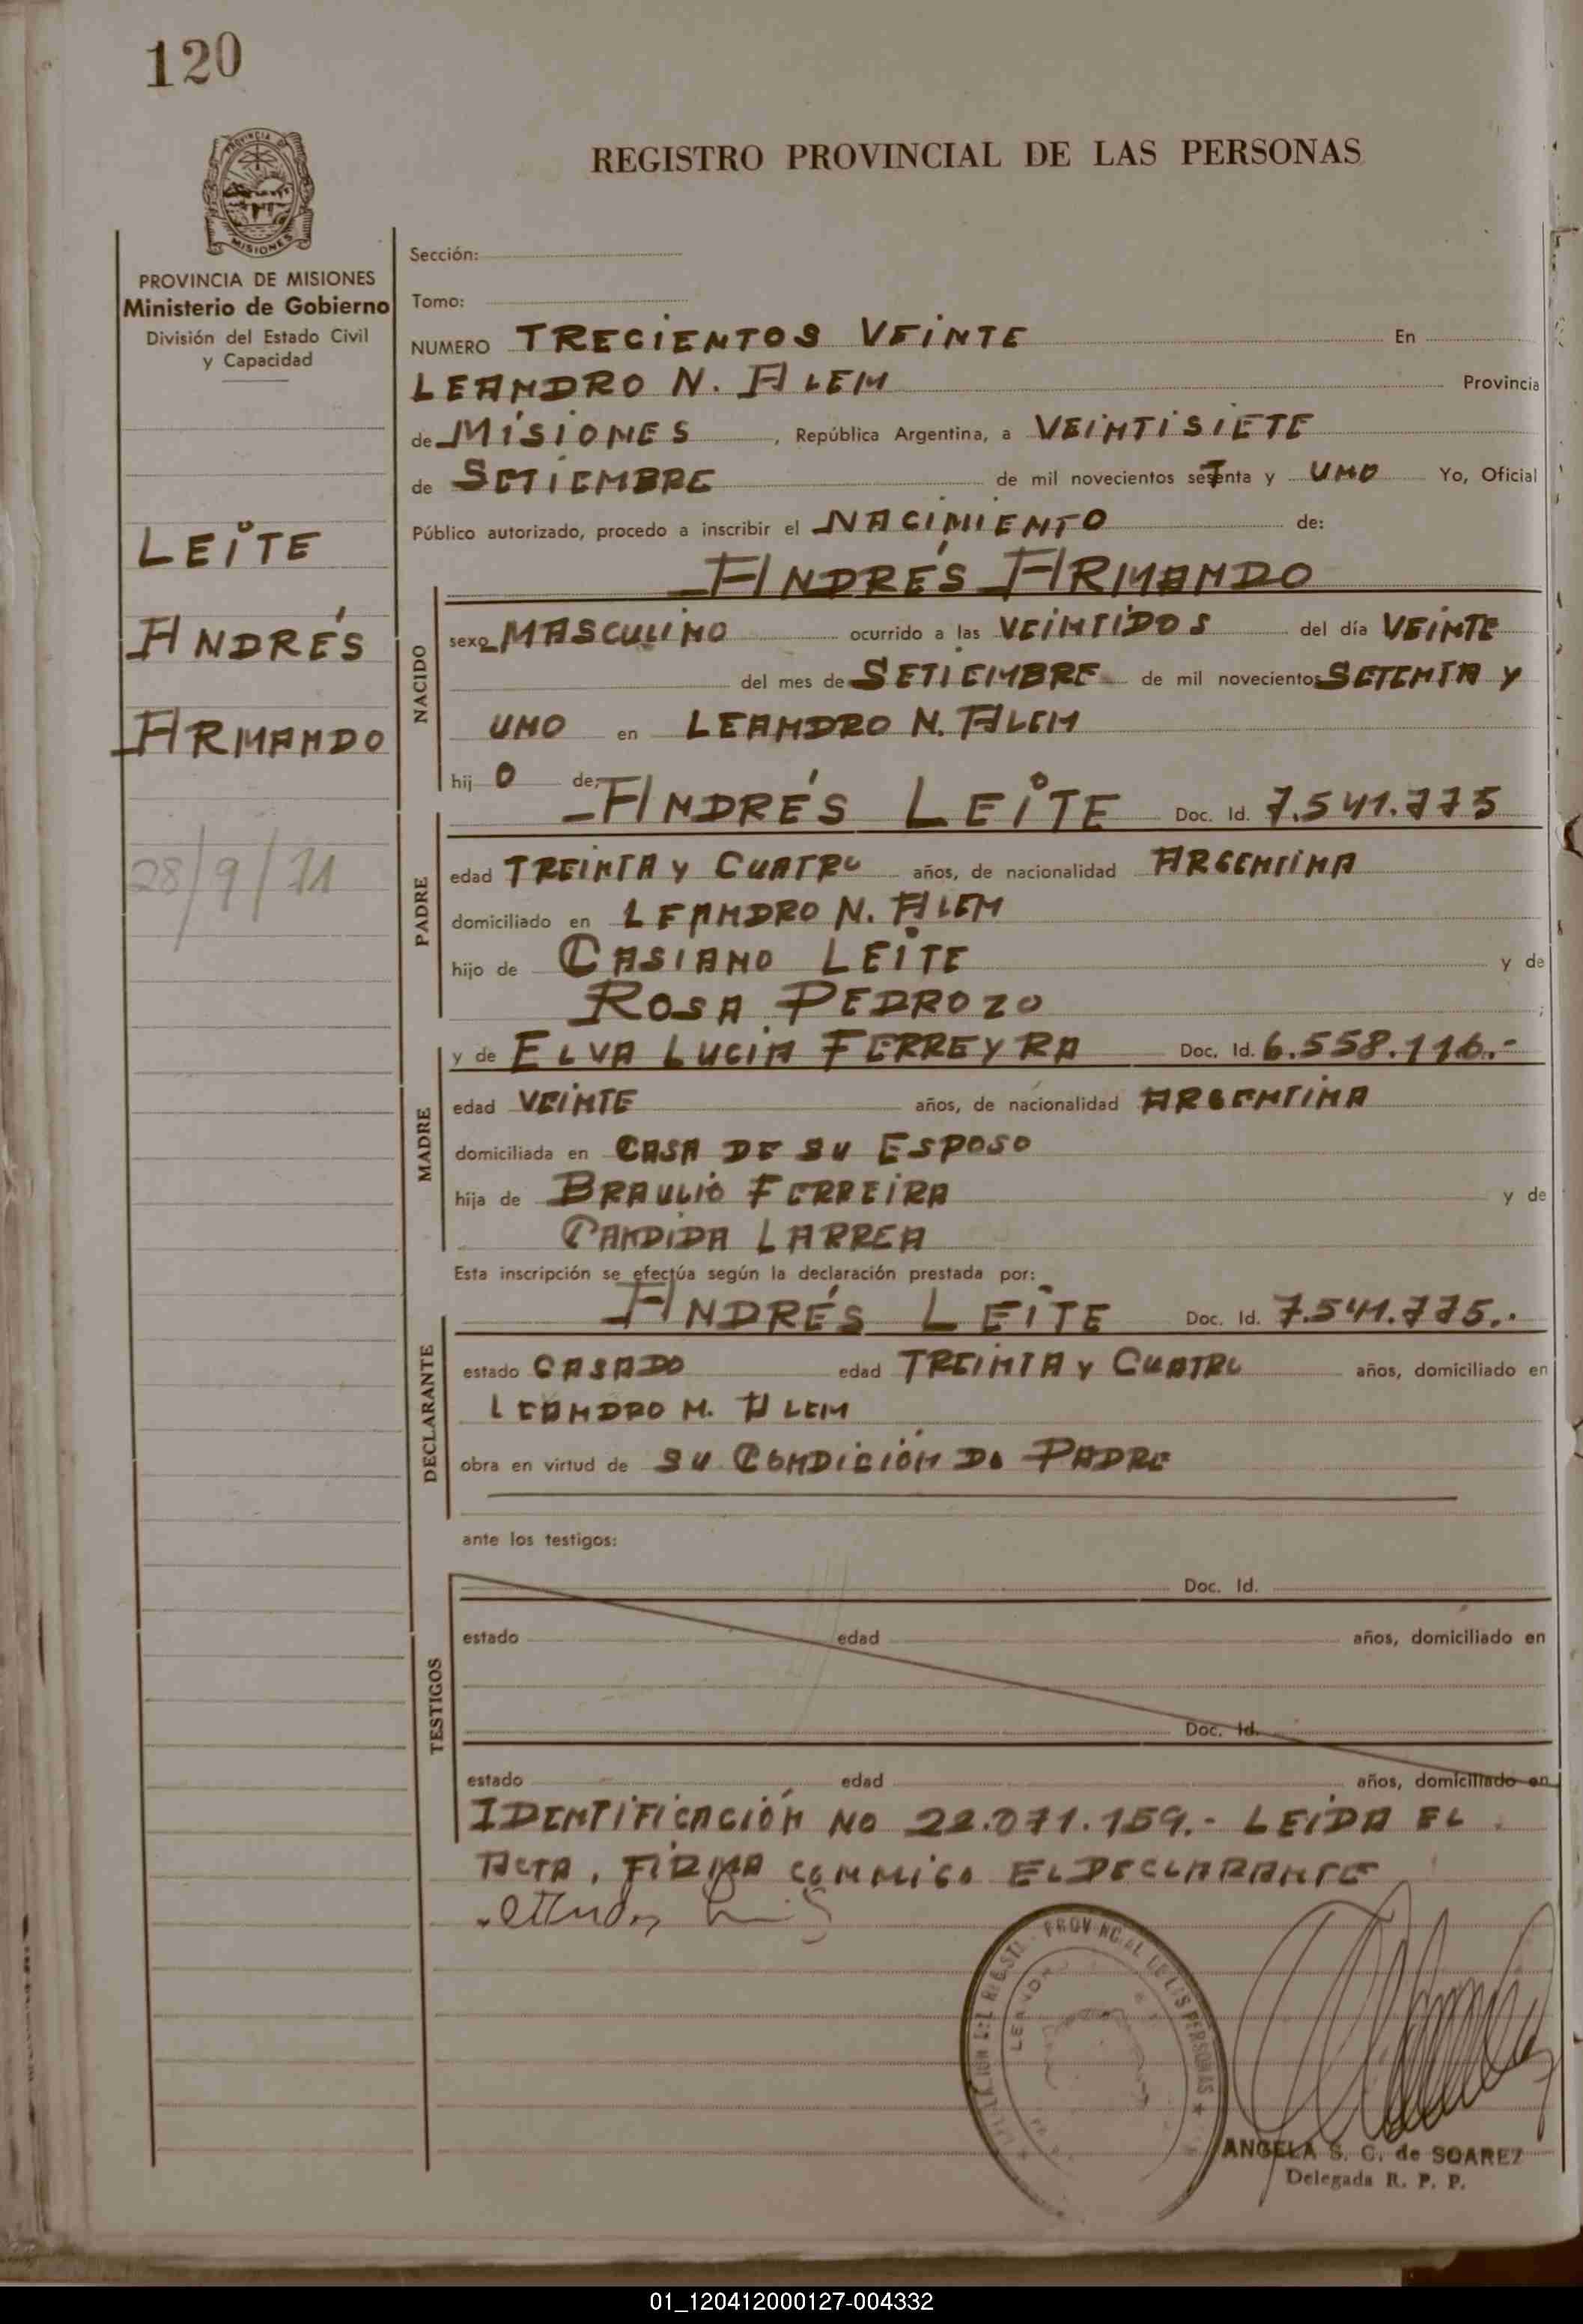 120
PROVINCIA DE
MISIONES
PROVINCIA DE MISIONES
Ministerio de Gobierno
División del Estado Civil
y Capacidad
LEITE
ANDRÉS
ARMANDO
28/9/71
REGISTRO PROVINCIAL DE LAS PERSONAS
Sección:
Tomo:
NUMERO TRECIENTOS VEINTE En
LEANDRO N. ALEM Provincia
de MISIONES, República Argentina, a VEINTISIETE
de SETIEMBRE de mil novecientos setenta y UNO Yo, Oficial
Público autorizado, procedo a inscribir el NACIMIENTO de:
ANDRÉS ARMANDO
NACIDO
sexo MASCULINO ocurrido a las VEINTIDOS del día VEINTE
del mes de SETIEMBRE de mil novecientos SETENTA Y
UNO en LEANDRO N. ALEM
hij O de:
ANDRÉS LEITE Doc. Id. 7.541.775
PADRE
edad TREINTA Y CUATRO años, de nacionalidad ARGENTINA
domiciliado en LEANDRO N. ALEM
hijo de CASIANO LEITE y de
ROSA PEDROZO ;
y de ELVA LUCIA FERREYRA Doc. Id. 6.558.116.-
MADRE
edad VEINTE años, de nacionalidad ARGENTINA
domiciliada en CASA DE SU ESPOSO
hija de BRAULIO FERREIRA y de
CANDIDA LARREA
Esta inscripción se efectúa según la declaración prestada por:
ANDRÉS LEITE Doc. Id. 7.541.775.-
DECLARANTE
estado CASADO edad TREINTA Y CUATRO años, domiciliado en
LEANDRO N. ALEM
obra en virtud de SU CONDICIÓN DE PADRE
ante los testigos:
Doc. Id.
TESTIGOS
estado edad años, domiciliado en
Doc. Id.
estado edad años, domiciliado en
IDENTIFICACIÓN No 22.071.159.- LEIDA EL
ACTA, FIRMA CONMIGO EL DECLARANTE
PROVINCIAL DE LAS PERSONAS
ANGELA S. C. de SOAREZ
Delegada R. P. P.
01_120412000127-004332